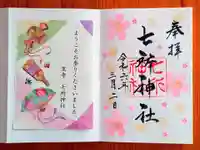 奉拝
七所神社
令和六年
三月二日
ようこそお参りくださいました
七所神社